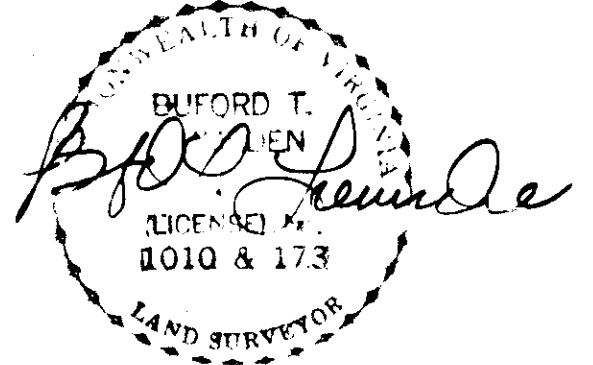 COMMONWEALTH OF VIRGINIA
BUFORD T.
(LICENSE) No.
1010 & 173
LAND SURVEYOR